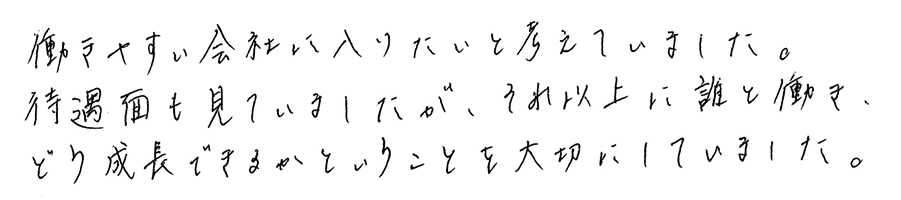 働きやすい会社に入りたいと考えていました。
待遇面も見ていましたが、それ以上に誰と働き、
どう成長できるかということを大切にしていました。